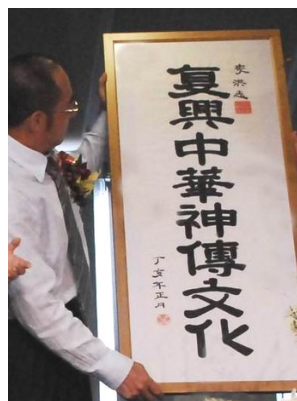 李洪志
复興中華神傳文化
丁亥年正月